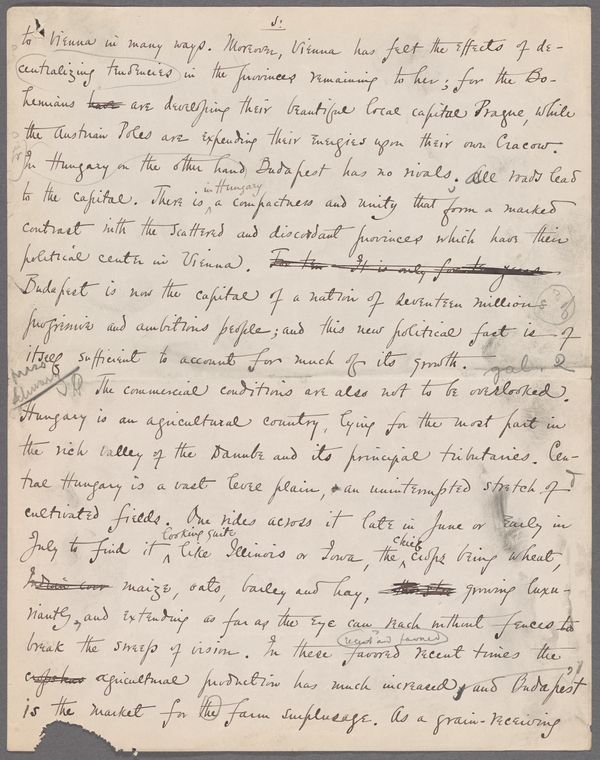 5.
to Vienna in many ways. Moreover, Vienna has felt the effects of de-
centralizing tendencies in the provinces remaining to her; for the Bo-
hemians have are developing their beautiful local capital Prague, while
the Austrian Poles are expending their energies upon their own Cracow.
In Hungary on the other hand, Budapest has no rivals. All roads lead
in Hungary
to the capital. There is a compactness and unity that form a marked
contrast with the scattered and discordant provinces which have their
political center in Vienna. For ten It is only for ten years
Budapest is now the capital of a nation of seventeen millions of
progressive and ambitious people; and this new political fact is of
itself sufficient to account for much of its growth. gal. 2
Miss
The commercial conditions are also not to be overlooked.
Hungary is an agricultural country, lying for the most part in
the rich valley of the Danube and its principal tributaries. Cen-
tral Hungary is a vast level plain, an uninterrupted stretch of
cultivated fields. One rides across it late in June or early in
looking quite chief
July to find it like Illinois or Iowa, the crops being wheat,
Indian corn maize, oats, barley and hay, growing luxu-
riantly, and extending as far as the eye can reach without fences to
break the sweep of vision. In these favored recent times the
recent and favored
crops has agricultural production has much increased, and Budapest
is the market for the farm surplusage. As a grain-receiving